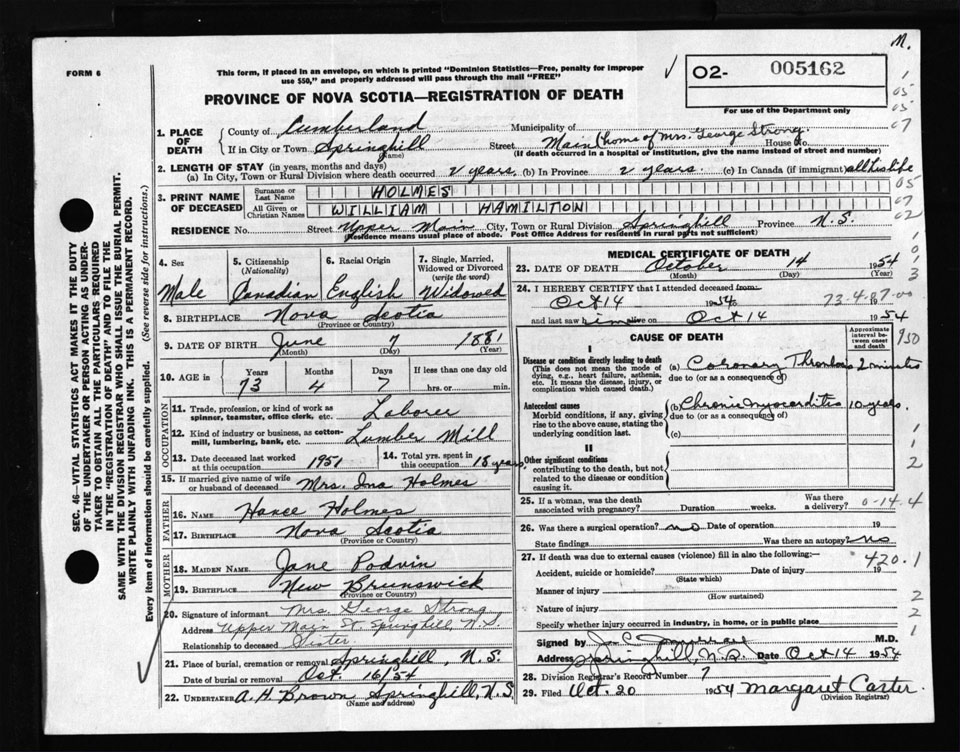 M.
FORM 6
This form, if placed in an envelope, on which is printed "Dominion Statistics—Free, penalty for improper
use $50," and properly addressed will pass through the mail "FREE"
02- 005162
For use of the Department only
PROVINCE OF NOVA SCOTIA—REGISTRATION OF DEATH
1. PLACE OF DEATH
County of Cumberland Municipality of
If in City or Town Springhill (Name) Street Main (home of Mrs. George Strong. House No.
(If death occurred in a hospital or institution, give the name instead of street and number)
2. LENGTH OF STAY (in years, months and days)
(a) In City, Town or Rural Division where death occurred 2 years. (b) In Province 2 years. (c) In Canada (if immigrant) all his life
3. PRINT NAME OF DECEASED
Surname or Last Name HOLMES
All Given or Christian Names WILLIAM HAMILTON
RESIDENCE No. Street Upper Main City, Town or Rural Division Springhill Province N.S.
(Residence means usual place of abode. Post Office Address for residents in rural parts not sufficient)
4. Sex Male
5. Citizenship (Nationality) Canadian
6. Racial Origin English
7. Single, Married, Widowed or Divorced (write the word) Widowed
8. BIRTHPLACE Nova Scotia
(Province or Country)
9. DATE OF BIRTH June 7 1881
(Month) (Day) (Year)
10. AGE in Years 73 Months 4 Days 7 If less than one day hrs. or min.
OCCUPATION
11. Trade, profession, or kind of work as spinner, teamster, office clerk, etc. Laborer
12. Kind of industry or business, as cotton-mill, lumbering, bank, etc. Lumber Mill
13. Date deceased last worked at this occupation 1951
14. Total yrs. spent in this occupation 18 years
15. If married give name of wife or husband of deceased Mrs. Ina Holmes
FATHER
16. NAME Hance Holmes
17. BIRTHPLACE Nova Scotia
(Province or Country)
MOTHER
18. MAIDEN NAME Jane Podvin
19. BIRTHPLACE New Brunswick
(Province or Country)
20. Signature of informant Mrs. George Strong
Address Upper Main St. Springhill, N.S.
Relationship to deceased Sister
21. Place of burial, cremation or removal Springhill, N.S.
Date of burial or removal Oct. 16/54
22. UNDERTAKER A. H. Brown Springhill, N.S.
(Name and address)
MEDICAL CERTIFICATE OF DEATH
23. DATE OF DEATH October 14 1954
(Month) (Day) (Year)
24. I HEREBY CERTIFY that I attended deceased from:
Oct 14 1954
and last saw him alive on Oct 14 1954
CAUSE OF DEATH
Approximate interval between onset and death
I
Disease or condition directly leading to death
(This does not mean the mode of dying, e.g., heart failure, asthenia, etc. It means the disease, injury, or complication which caused death.)
(a) Coronary Thrombosis 2 minutes
due to (or as a consequence of)
Antecedent causes
Morbid conditions, if any, giving rise to the above cause, stating the underlying condition last.
(b) Chronic myocarditis 10 years.
due to (or as a consequence of)
(c)
II
Other significant conditions
contributing to the death, but not related to the disease or condition causing it.
25. If a woman, was the death associated with pregnancy? Duration weeks. Was there a delivery?
26. Was there a surgical operation? no Date of operation 19
State findings Was there an autopsy? no
27. If death was due to external causes (violence) fill in also the following:—
Accident, suicide or homicide Date of injury 19
(State which)
Manner of injury
(How sustained)
Nature of injury
Specify whether injury occurred in industry, in home, or in public place
Signed by M.D.
Address Springhill, N.S. Date Oct 14 1954
28. Division Registrar's Record Number 7
29. Filed Oct. 20 1954 Margaret Carter.
(Division Registrar)
420.1
SEC. 46—VITAL STATISTICS ACT MAKES IT THE DUTY
OF THE UNDERTAKER OR PERSON ACTING AS UNDER-
TAKER TO OBTAIN ALL THE PARTICULARS REQUIRED
IN THE "REGISTRATION OF DEATH" AND TO FILE THE
SAME WITH THE DIVISION REGISTRAR WHO SHALL ISSUE THE BURIAL PERMIT.
WRITE PLAINLY WITH UNFADING INK. THIS IS A PERMANENT RECORD.
Every item of information should be carefully supplied. (See reverse side for instructions.)